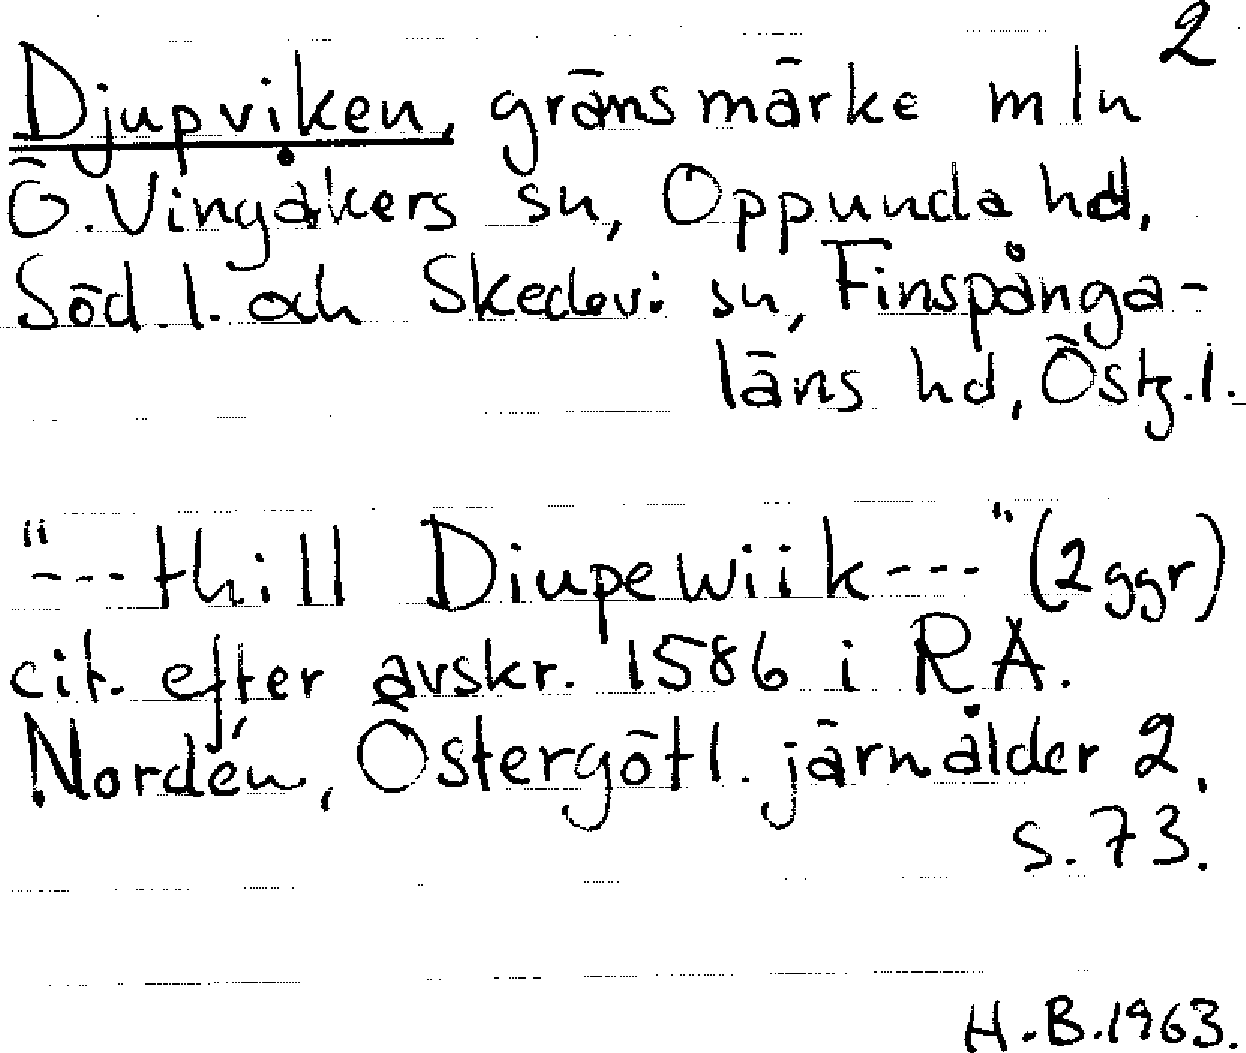 2
Djupviken, gränsmärke mln
Ö. Vingåkers sn, Oppunda hd,
Söd. l. och Skedevi sn, Finspånga-
läns hd, Östg. l.
"---thill Diupewiik---" (2 ggr)
cit. efter avskr. 1586 i RA.
Nordén, Östergötl. järnålder 2.
s. 73.
H.B. 1963.